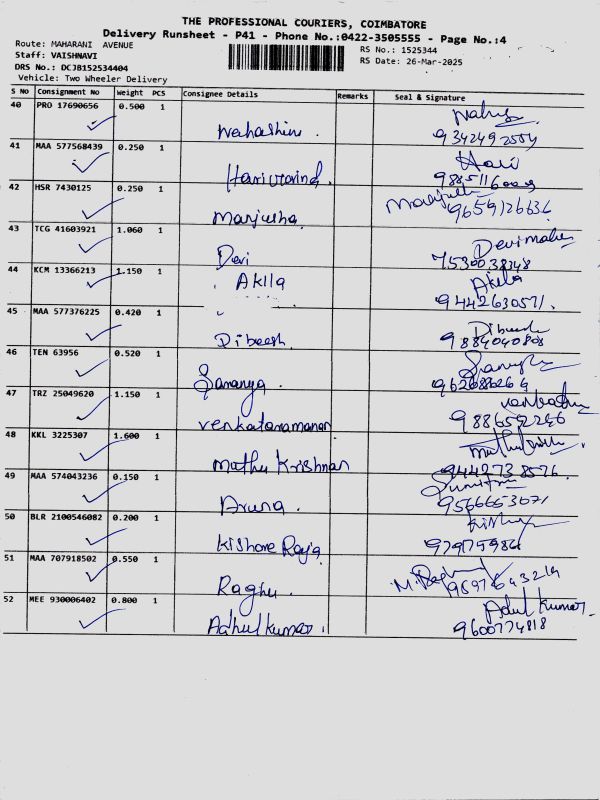 THE PROFESSIONAL COURIERS, COIMBATORE
Delivery Runsheet - P41 - Phone No.:0422-3505555 - Page No.:4
Route: MAHARANI AVENUE
Staff: VAISHNAVI
DRS No.: DCJB152534404
Vehicle: Two Wheeler Delivery
RS No.: 1525344
RS Date: 26-Mar-2025
S No Consignment No Weight PCS Consignee Details Remarks Seal & Signature
40 PRO 17690656 0.500 1
9342492554
41 MAA 577568439 0.250 1
Hari
42 HSR 7430125 0.250 1
Manjusha 9659126636
43 TCG 41603921 1.060 1
Devi 7530038348
44 KCM 13366213 1.150 1
Akila Akila
9442630571.
45 MAA 577376225 0.420 1
Dibeesh. Dibeesh
9884040808
46 TEN 63956 0.520 1
Saranya. 9626886264
47 TRZ 25049620 1.150 1
Venkataramanan
48 KKL 3225307 1.600 1
Muthu Krishnan 9442738576.
49 MAA 574043236 0.150 1
Aruna. 9566653071
50 BLR 2100546082 0.200 1
Kishore Raja
51 MAA 707918502 0.550 1
Raghu
52 MEE 930006402 0.800 1
Adhul Kumar. Adul Kumar.
9600774818